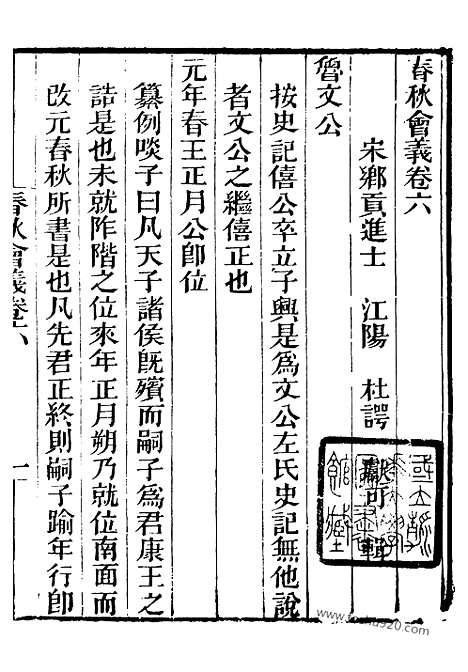 春秋會義卷六
宋鄉貢進士　江陽　杜諤　獻可　輯
魯文公
按史記僖公卒立子興是為文公左氏史記無他說
者文公之繼僖正也
元年春王正月公卽位
纂例啖子曰凡天子諸侯旣殯而嗣子為君康王之
誥是也未就阼階之位來年正月朔乃就位南面而
改元春秋所書是也凡先君正終則嗣子踰年行卽
春秋會義卷六
一